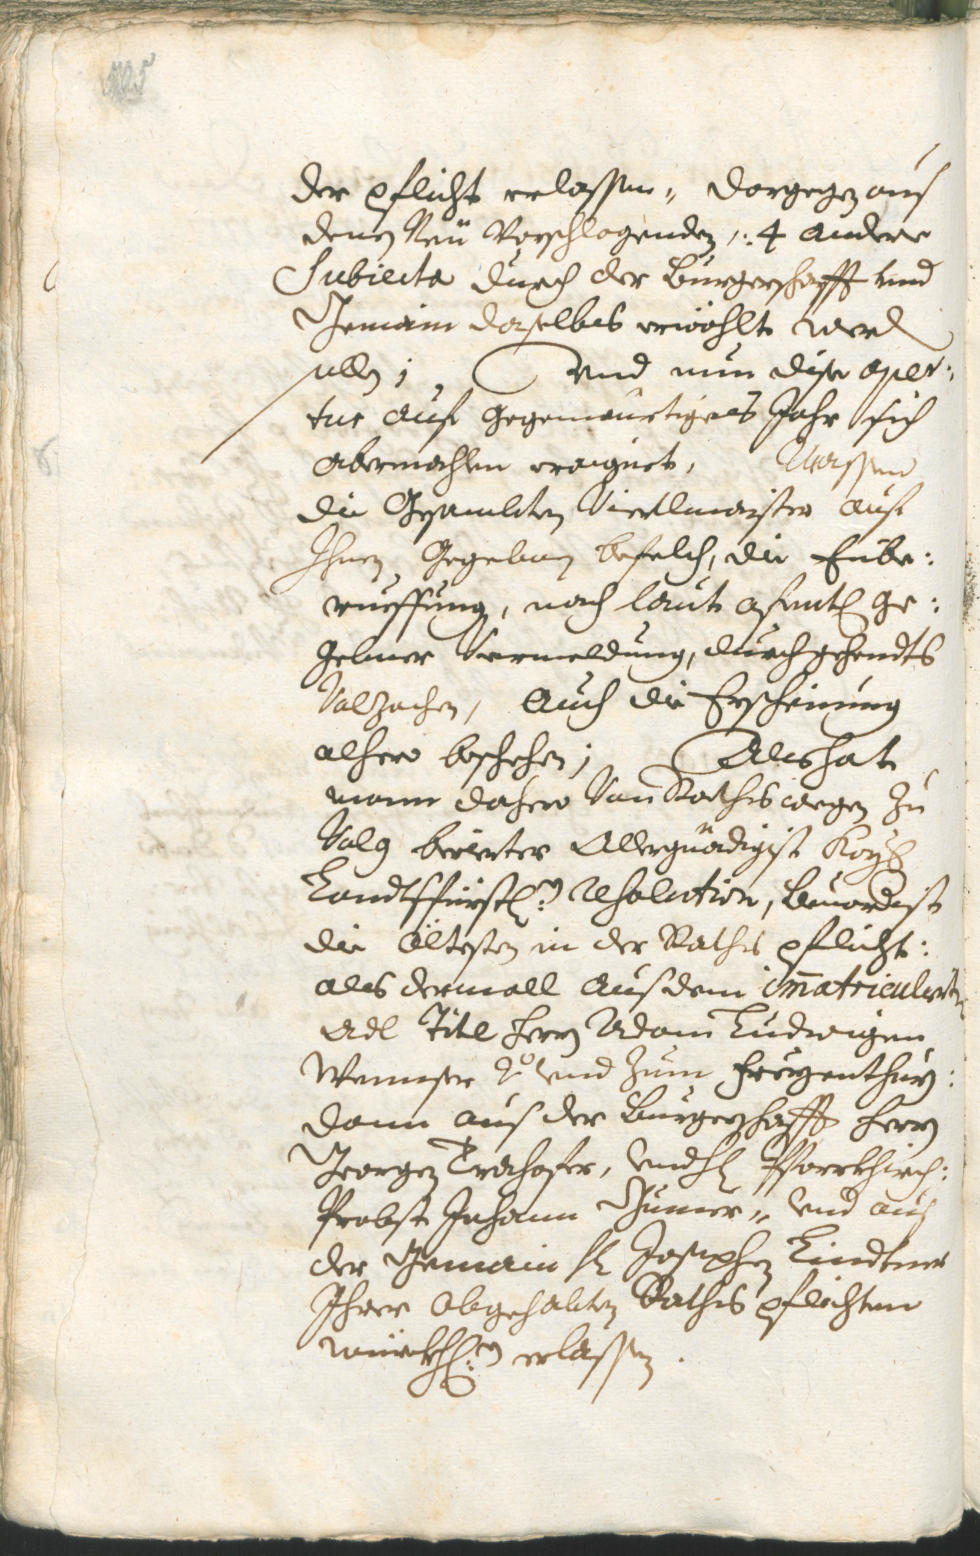 der pflicht erlassen, dargegen aus
denen Neü Vorschlagenden, 4 andere
Subiecta durch der Burgerschafft und
Gemain daselbes erwöhlt werd
sollen; Und nun dise aper:
tur auf Gegenwürtiges Jahr sich
abermahlen eraignet, Massen
die Gesambten Viertlmaister auf
Ihnen Gegebnen befelch, die Einbe:
rueffung, nach laut ge:
gebner Vermeldung, durchgehendts
Volzachen, Auch die Erscheinung
alhero beschehen; Alls hat
mann dahero Von Raths wegen Zu
Volg Allergnädigist Kays
Landtsfürstl: Resolution, Bevordist
die Öltesten in der Raths pflicht:
als dermall aus dem immatriculierten
Adl Titl Herrn Adam Ludwigen
Wenser und zum Freyenthurn:
dann aus der Burgerschafft Herrn
Georgen Trohofer, und H Pfarrkhirch:
Probst Johann und aus
der Gemain H Josephen Lindtner
Ihrer Obgehabten Raths pflichten
würckhl: erlassen.